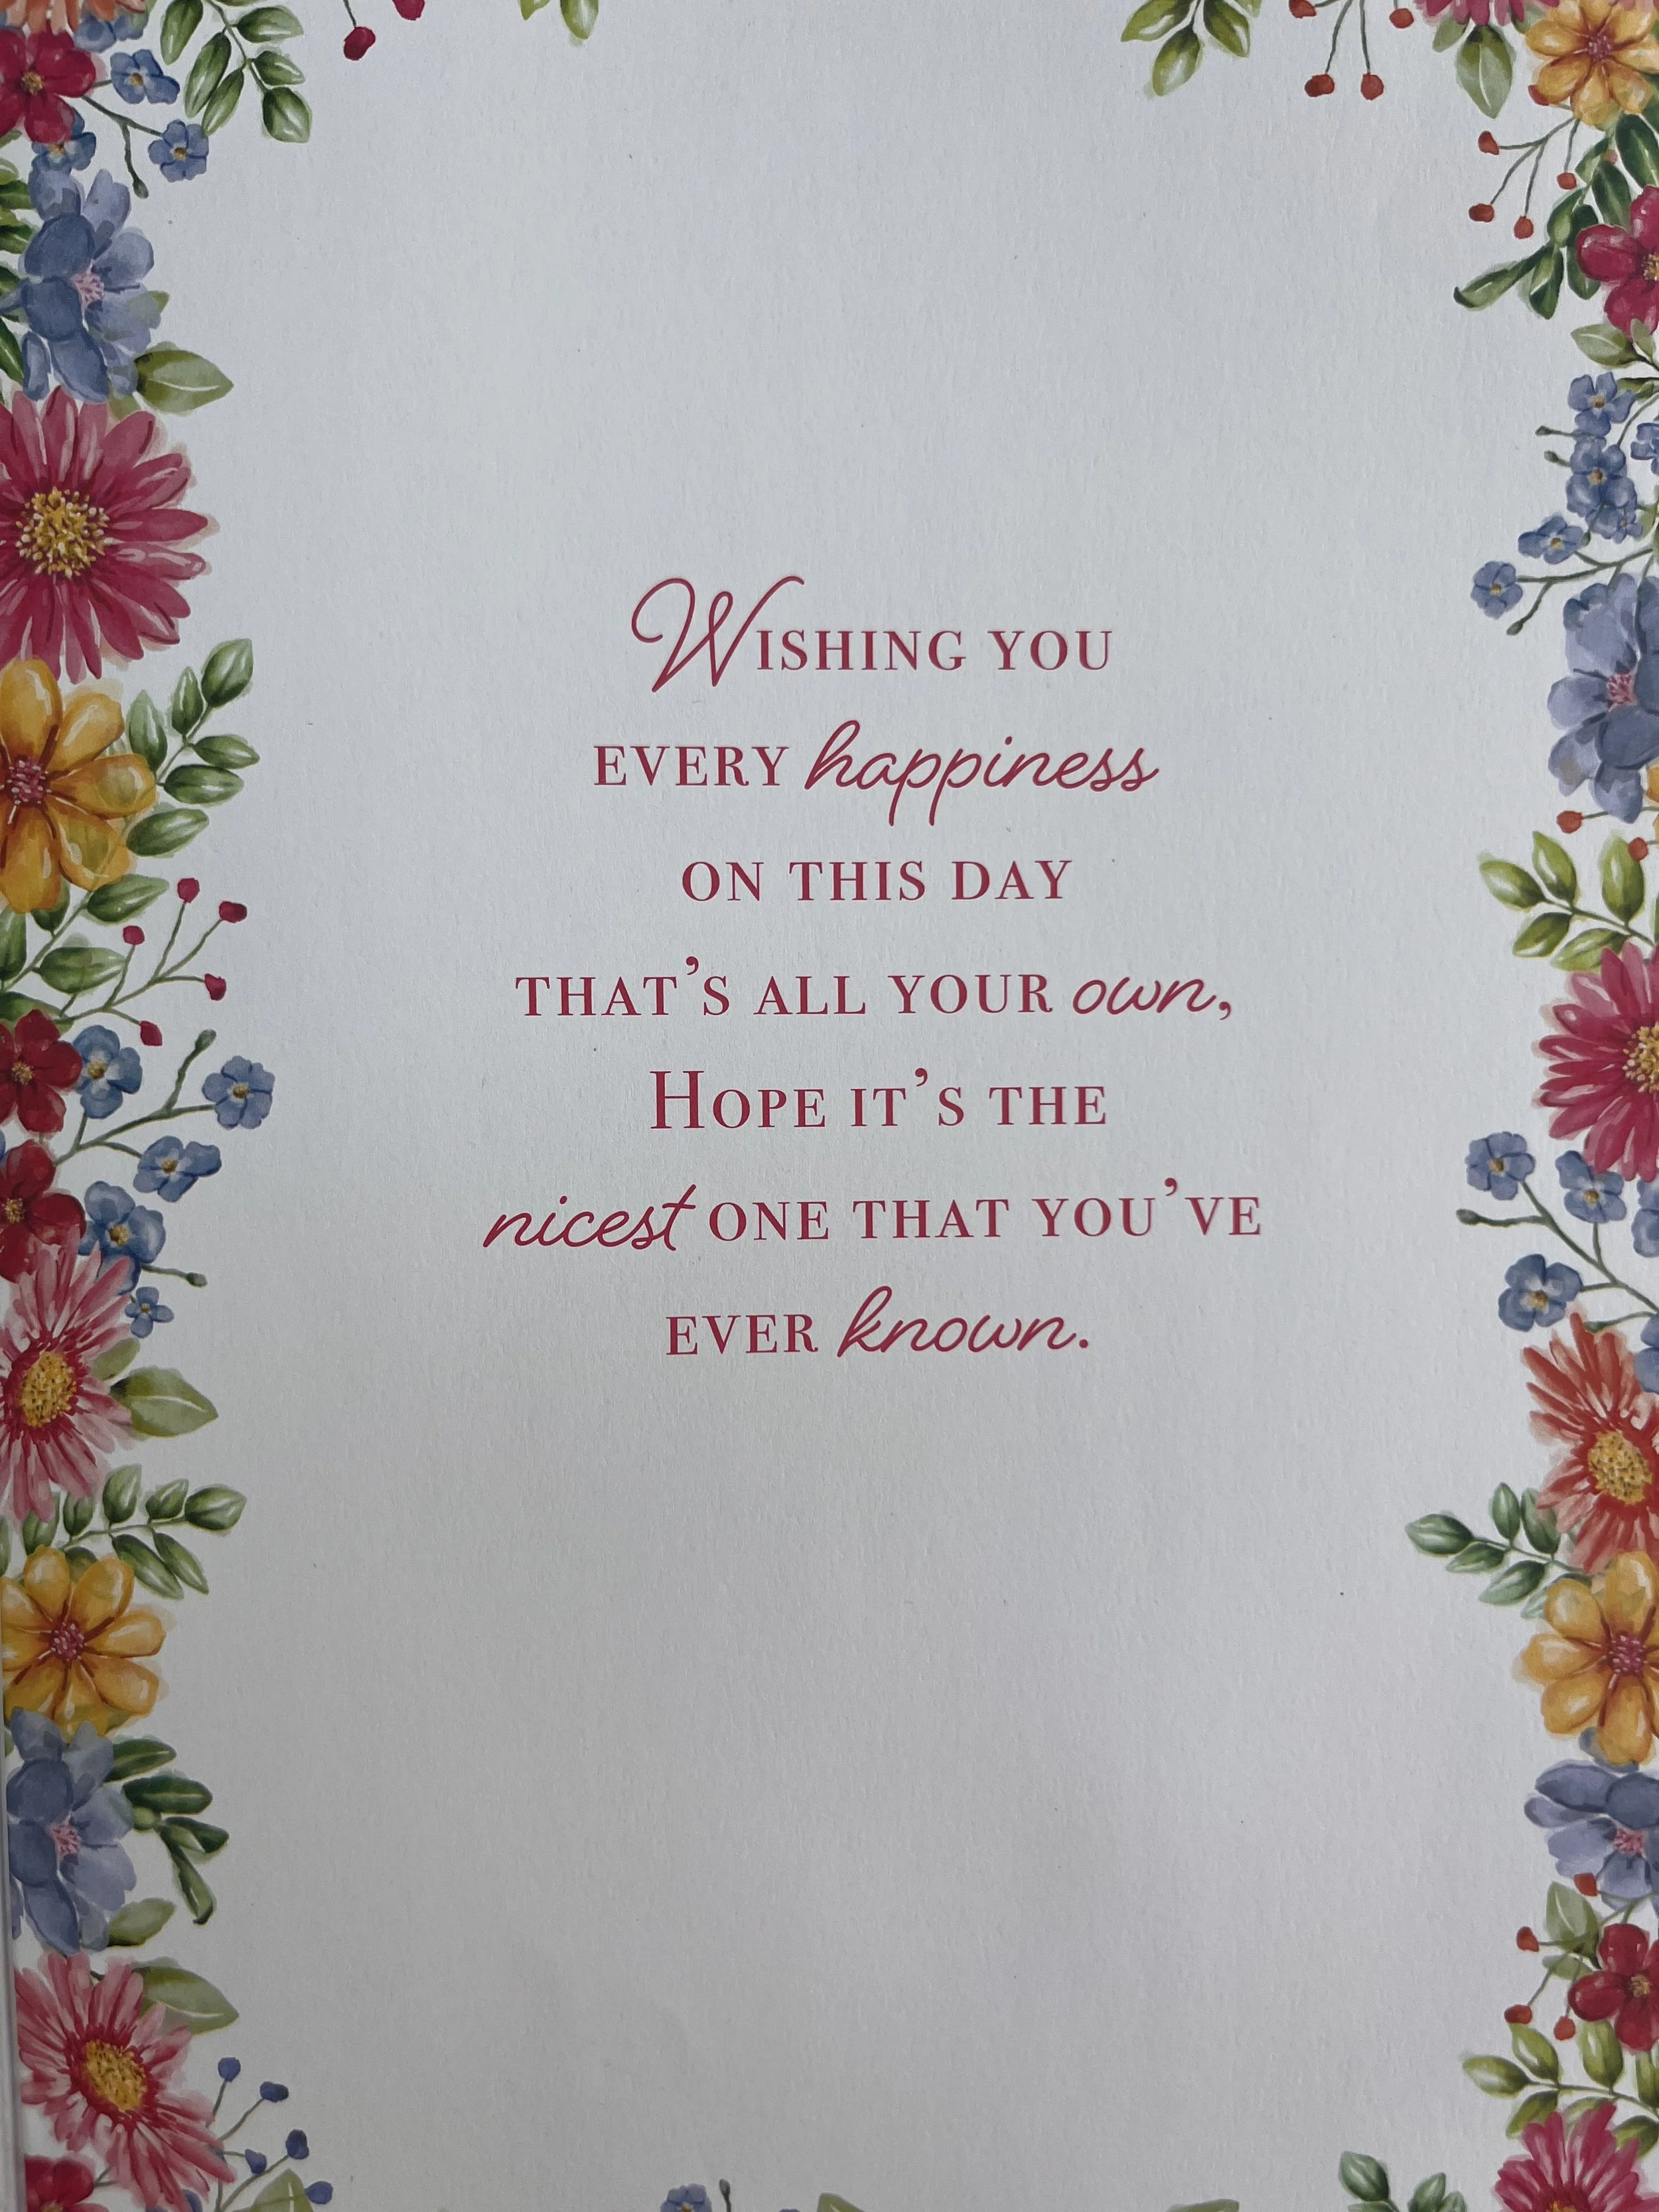 Wishing you
every happiness
on this day
that's all your own,
Hope it's the
nicest one that you've
ever known.